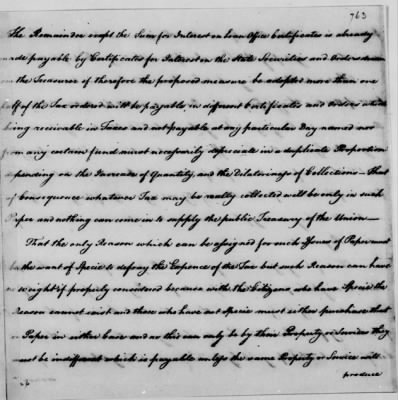 763
The Remainder except the Sum for Interest on Loan Office Certificates is already
made payable by Certificates for Interest on the State Securities and Orders drawn
on the Treasurer if therefore the proposed measure be adopted more than one
half of the Tax ordered will be payable in different Certificates and Orders which
being receivable in Taxes and not payable at any particular Day named nor
from any certain fund must necessarily depreciate in a duplicate Proportion
depending on the Increase of Quantity and the Dilatoriness of Collections — That
of Consequence whatever Tax may be really collected will be only in such
Paper and nothing can come in to supply the public Treasury of the Union —
That the only Reason which can be assigned for such Issues of Paper must
be the want of Specie to defray the Expence of the Tax but such Reason can have
no weight if properly considered because with the Citizens who have Specie the
Reason cannot exist and those who have not Specie must either purchase that
or Paper in either Case and as this can only be by their Property or Services they
must be indifferent which is payable unless the same Property or Service will
produce